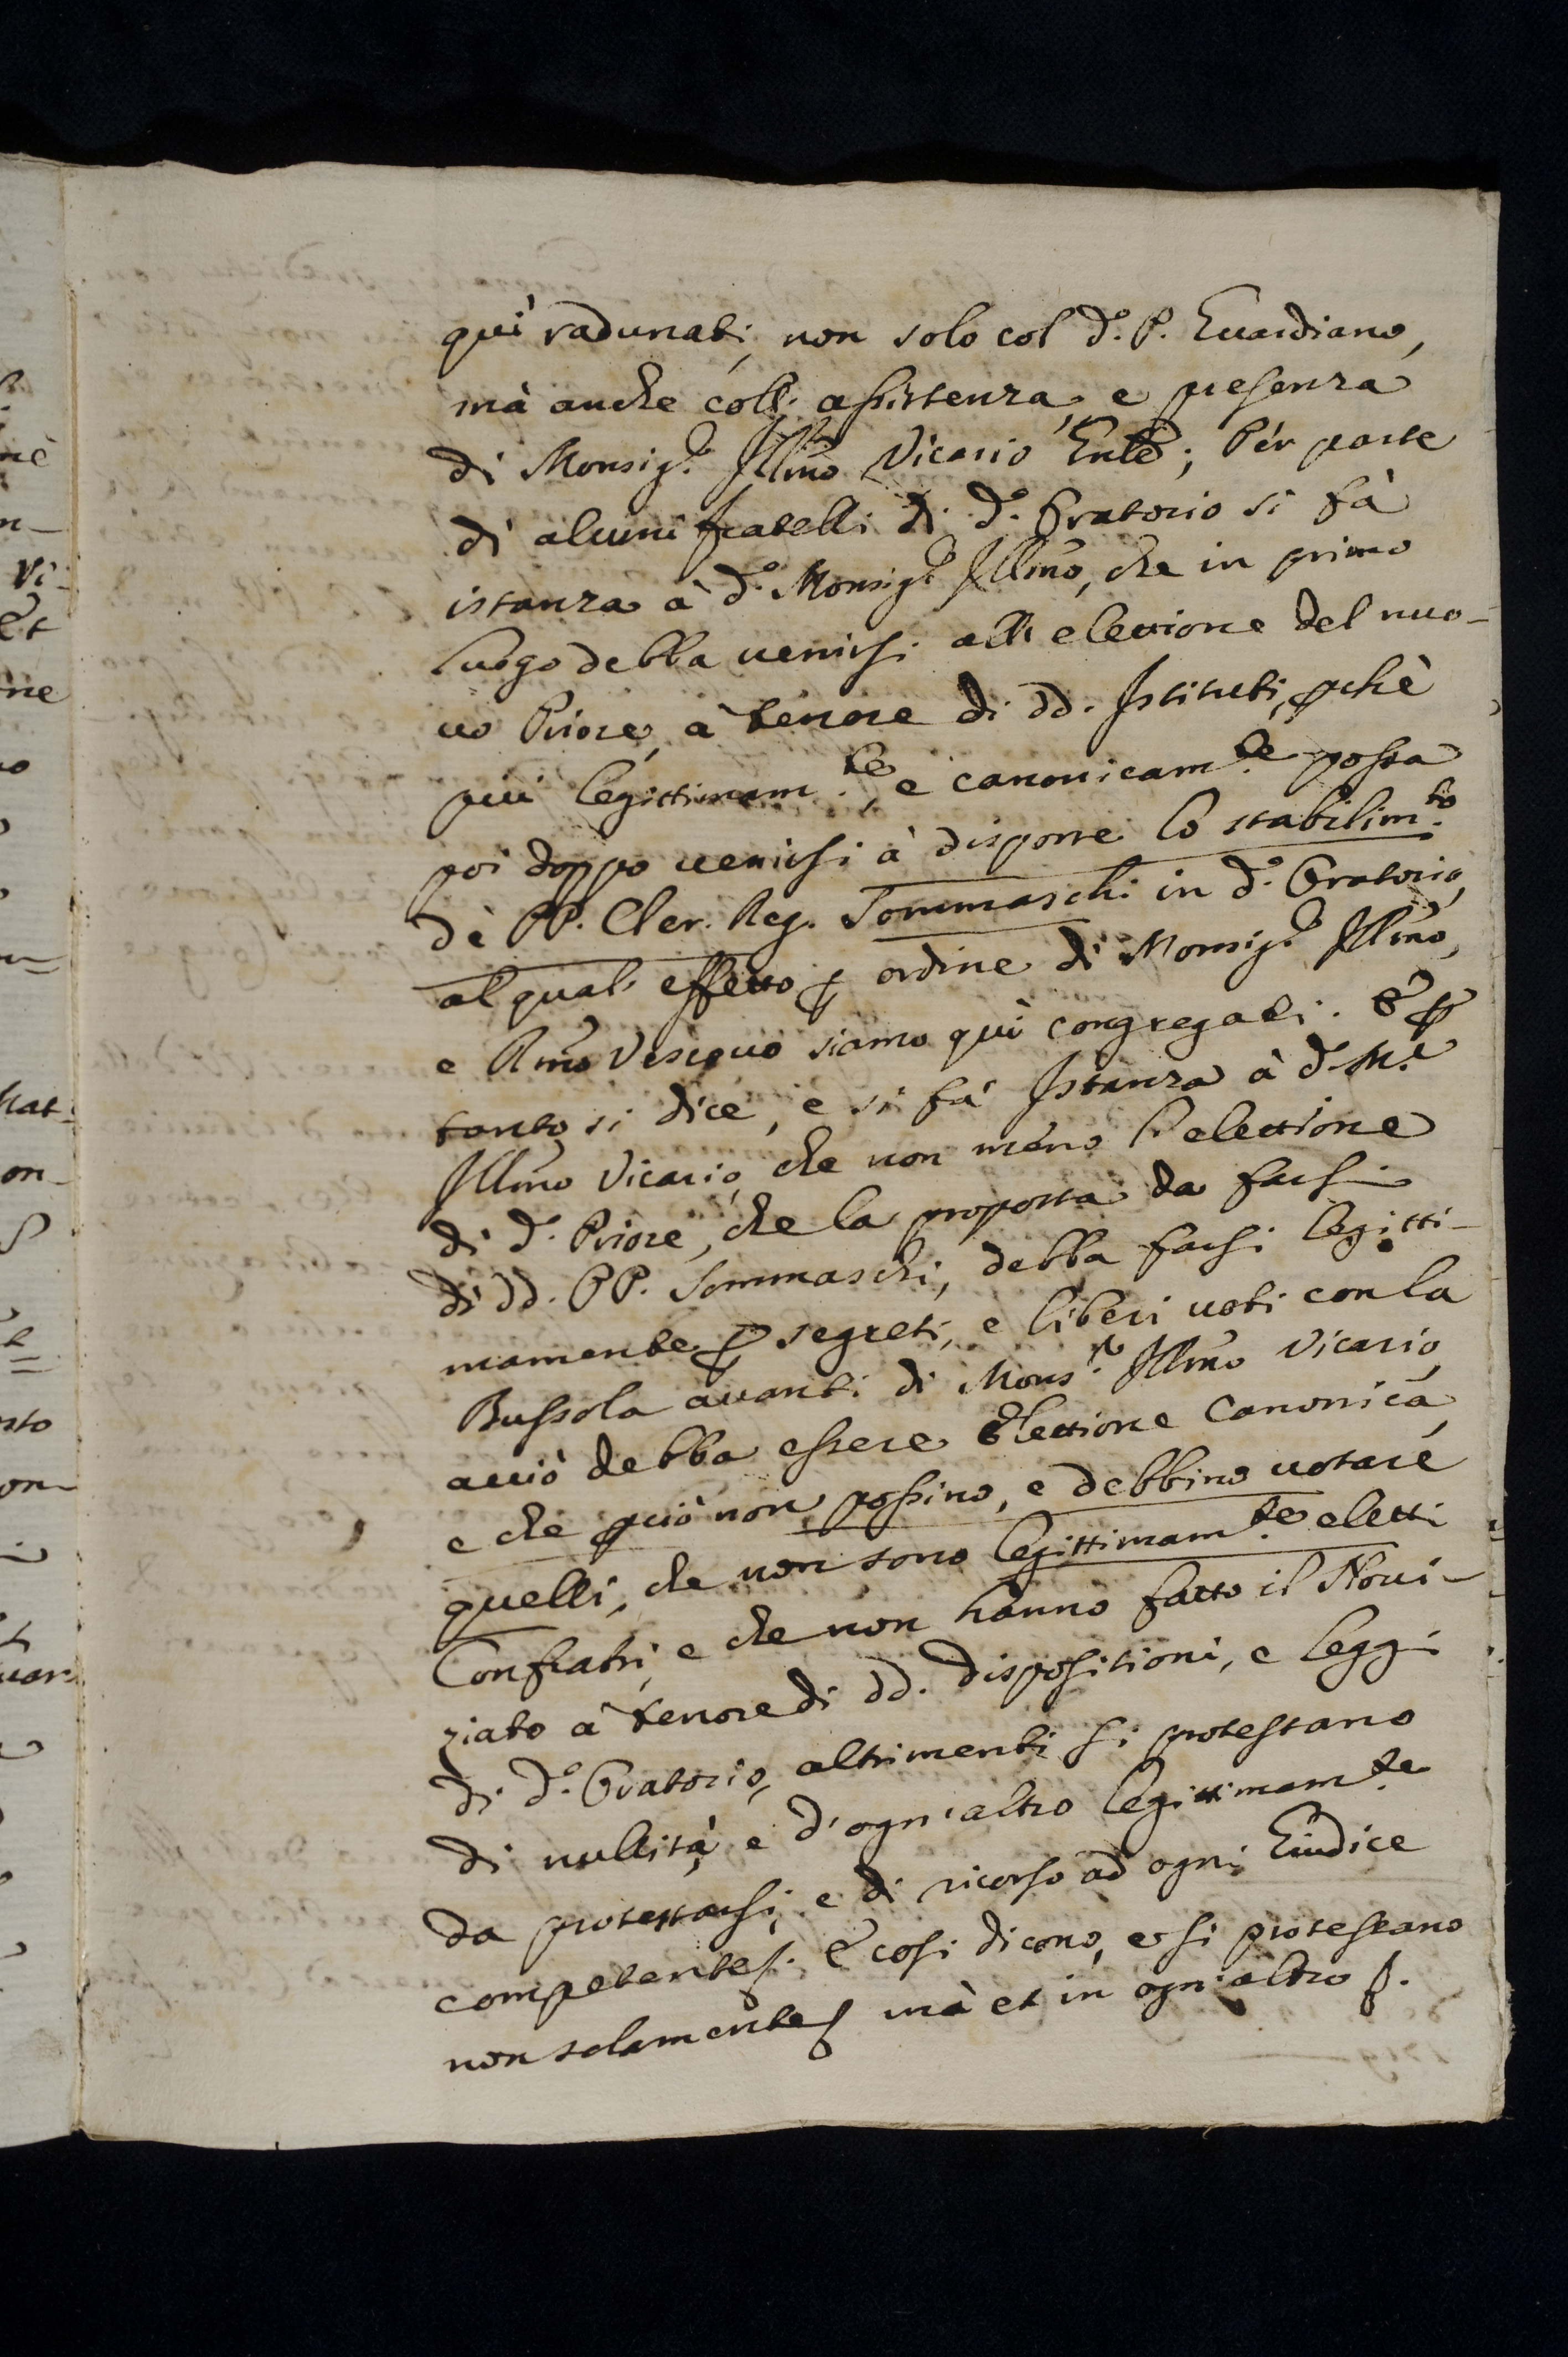 qui radunati, non solo col d.º P. Guardiano,
mà anche coll'assistenza, e presenza
di Monsig.r Illmo Vicario Gnle; Per parte
di alcuni fratelli di d.º Oratorio si fà
istanza à d.º Monsig.r Illmo, che in primo
luogo debba venirsi all'elettione del nuo-
vo Priore, à tenore di dd. Istituti, pchè
più legittimam.te, e canonicam.te possa
poi doppo venirsi à disporre lo stabilim.to
dè PP. Cler. Reg. Sommaschi in d.º Oratorio,
al qual effetto p ordine di Monsig.r Illmo,
e Rmo Vescovo siamo qui congregati. E p
tanto si dice, e si fà Istanza à d.º M.r
Illmo Vicario, che non meno l'elettione
di d.º Priore, che la proposta da farsi
di dd. PP. Sommaschi, debba farsi legitti-
mamente p segreti, e liberi voti con la
Bussola avanti di Mons.r Illmo Vicario,
acciò debba essere Elettione Canonica,
e che pciò non possino, e debbino votare
quelli, che non sono legittimam.te eletti
Confratri, e che non hanno fatto il Novi-
ziato à tenore di dd. dispositioni, e leggi
di d.º Oratorio, altrimenti si protestano
di nullità, e d'ogn'altro legittimam.te
da protestarsi, e di ricorso ad ogni Giudice
competente. E così dicono, e si protestano
non solamente mà et in ogn'altro